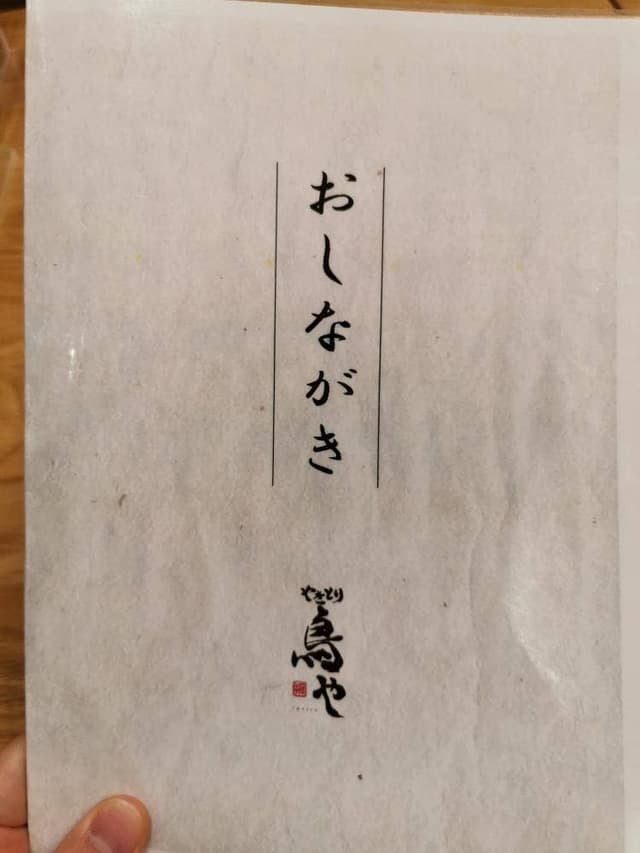 おしながき
やきとり
鳥や